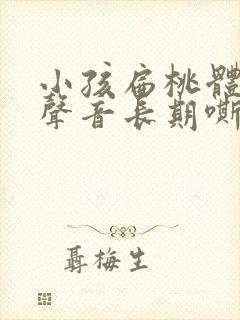 小孩扁桃體
聲音長期嘶
聶梅生